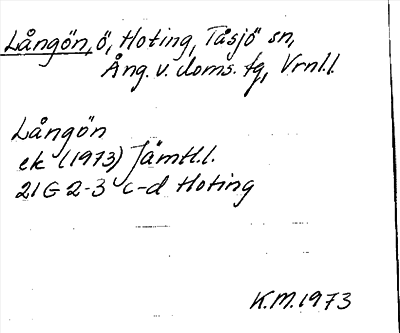 Långön, ö, Hoting, Tåsjö sn,
Ång. v. doms. fg, Vrnl.l.
Långön
ek (1973) Jämtl.l.
21G 2-3 c-d Hoting
K.M. 1973